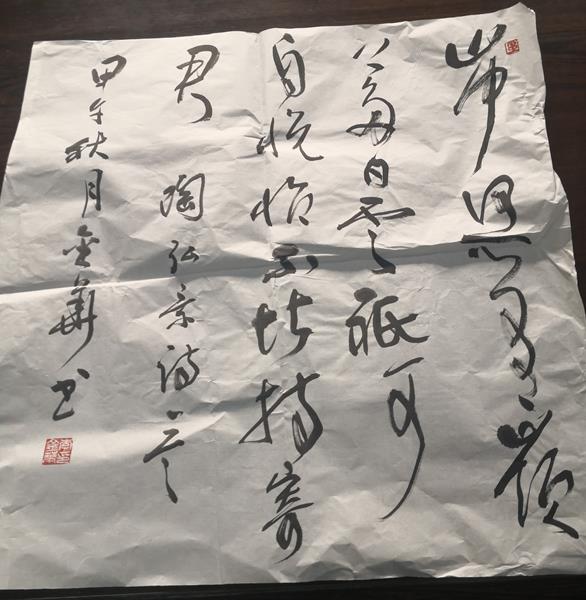 山中何所有嶺
上多白雲祇可
自悦怡不堪持寄
君 陶弘景詩一首
甲午秋月金華书